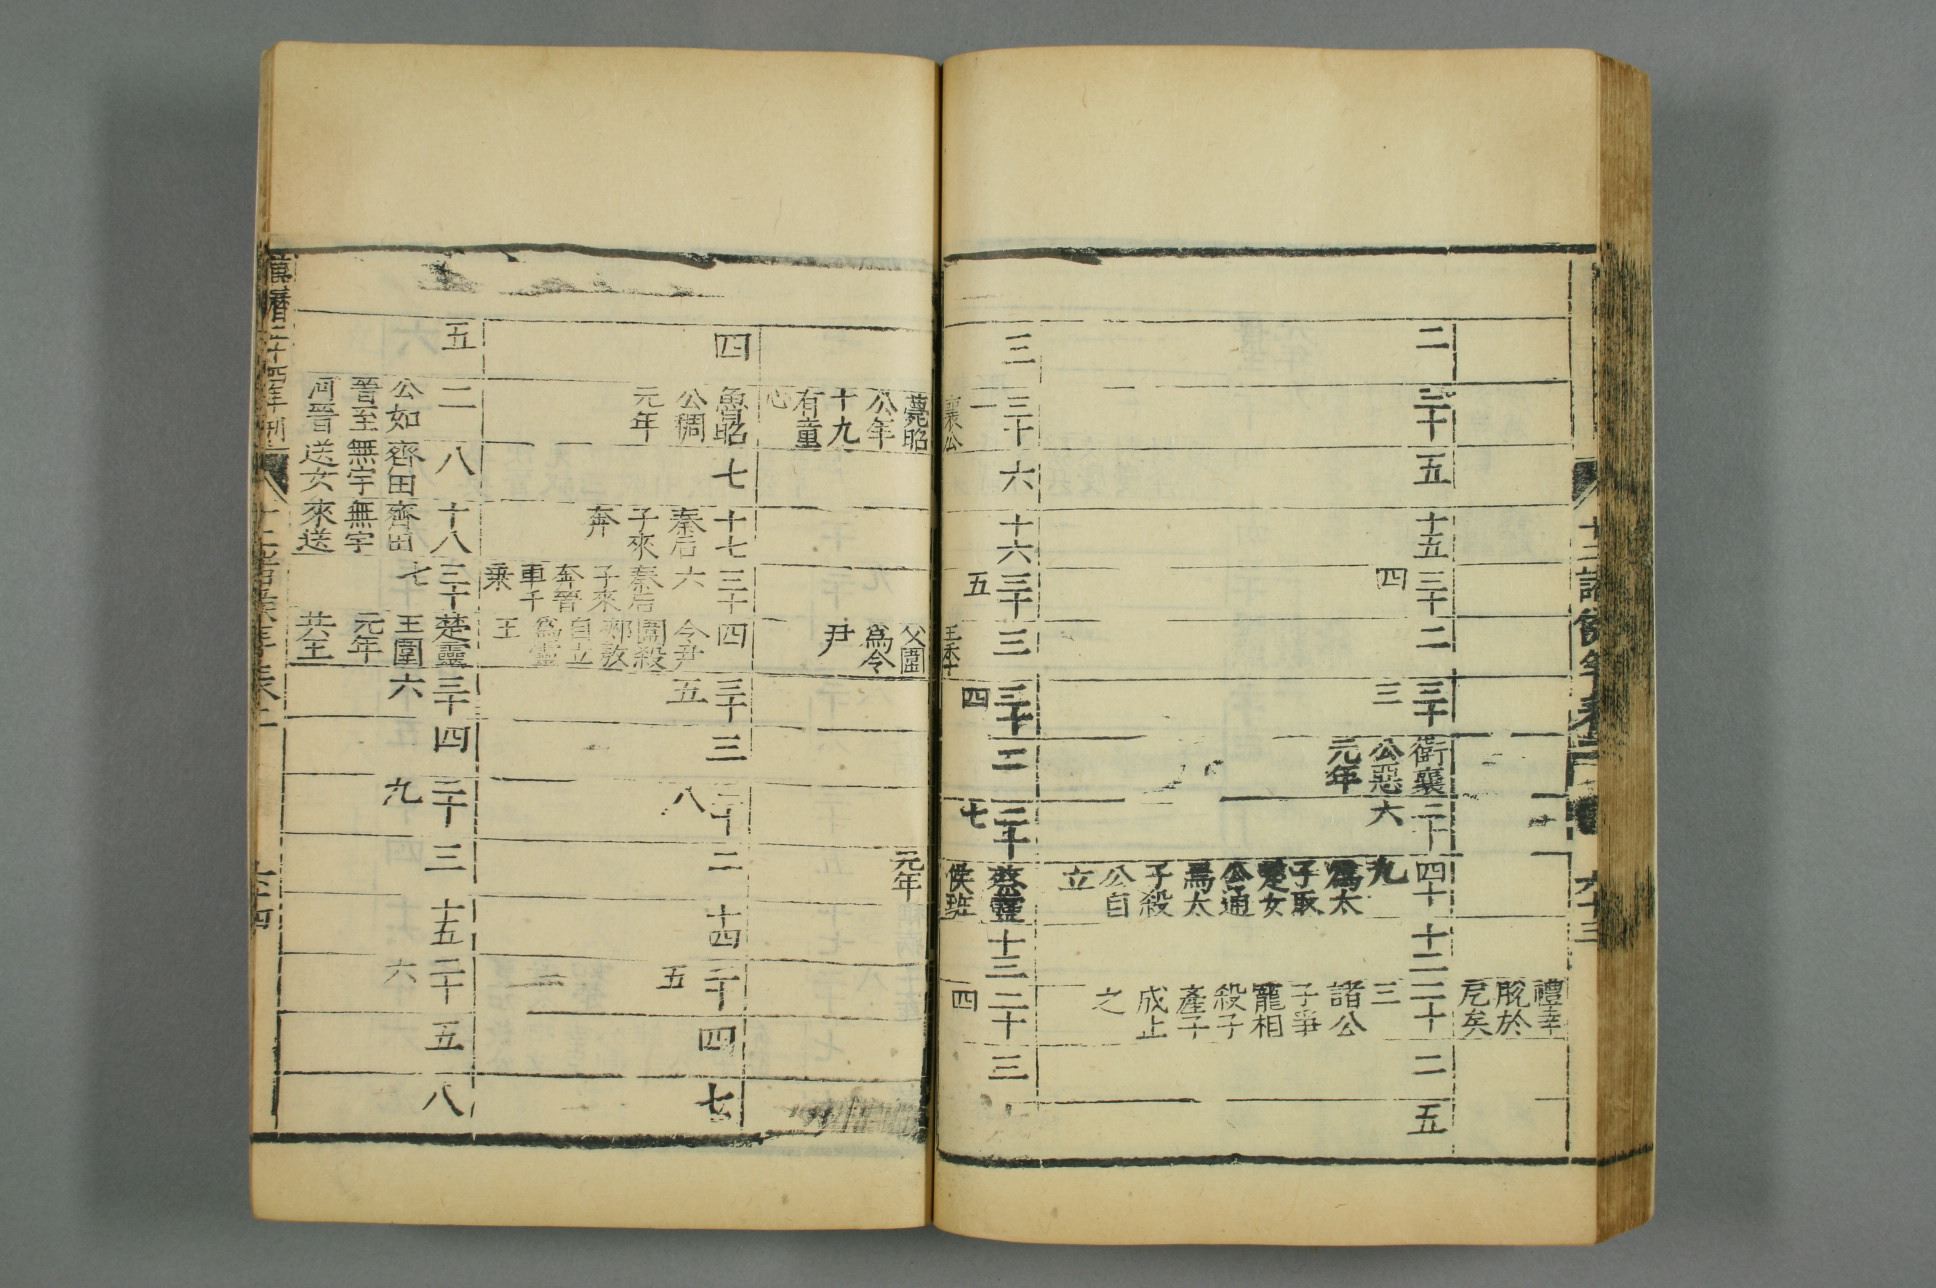 十二諸侯年表二
九十三
禮幸
脫於
戹矣
二
三十
五
十五
三十
四
二
三十
三
衛襄
公惡
元年
二十
六
四十
九
爲太
子取
楚女
公通
焉太
子殺
公自
立
十二
二十
三
諸公
子爭
寵相
殺子
產子
成止
之
二
五
三
三十
一
襄公
薨昭
公年
十九
有童
心
六
十六
三十
五
三
王季
父圍
爲令
尹
三十
四
二
二十
七
蔡靈
侯班
元年
十三
二十
四
三
四
魯昭
公稠
元年
七
十七
秦后
子來
奔
三十
六
秦后
子來
奔晉
車千
乘
四
令尹
圍殺
郟敖
自立
爲靈
王
三十
五
三
三十
八
二
十四
二十
五
四
七
五
二
公如
晉至
河晉
八
齊田
無宇
送女
十八
齊田
無宇
來送
三十
七
楚靈
王圍
元年
共王
三十
六
四
三十
九
三
十五
二十
六
五
八
萬曆二十四年刊
十二諸侯年表二
九十四